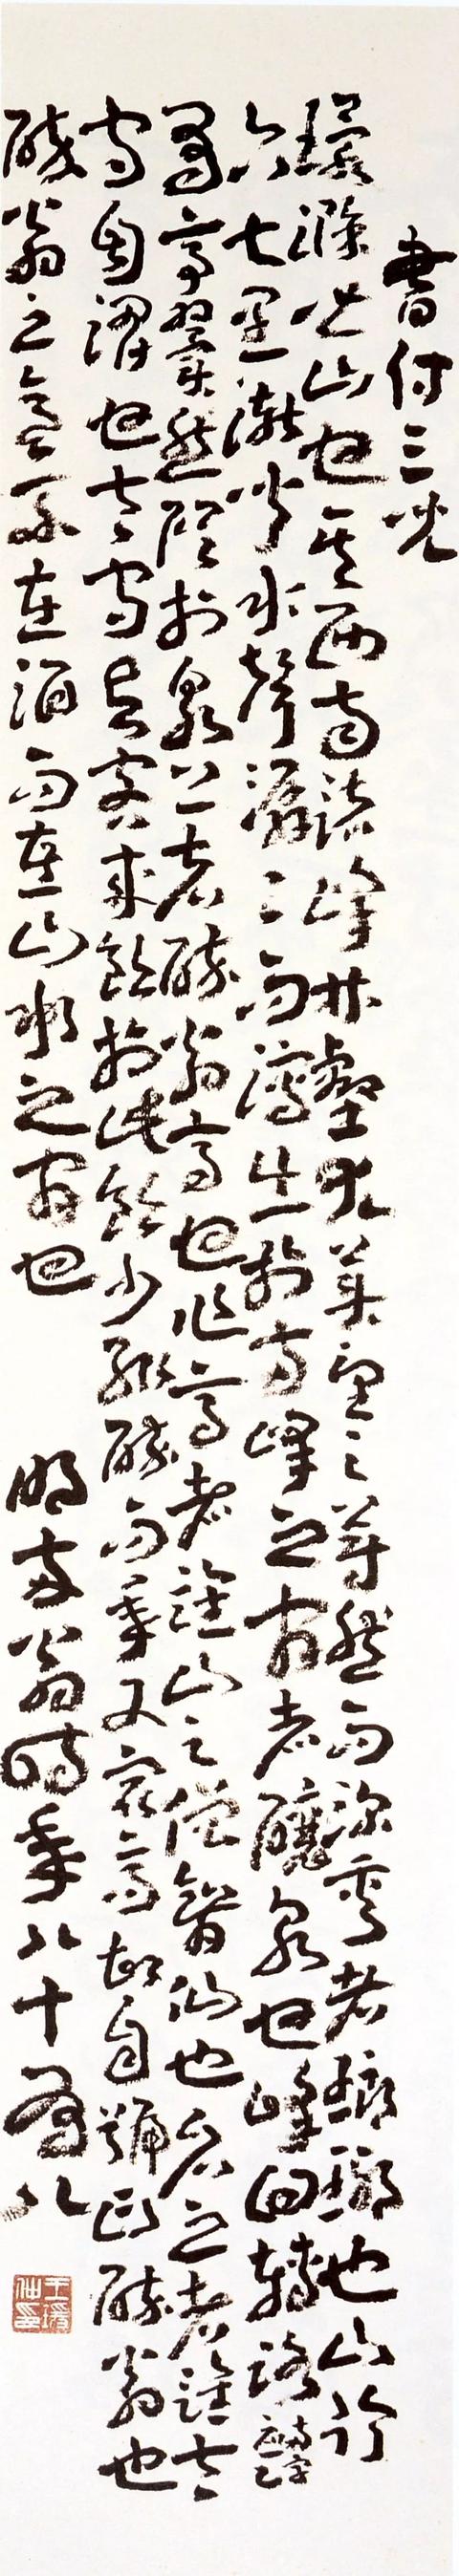 書付三兒
環滁皆山也其西南諸峰林壑尤美望之蔚然而深秀者瑯琊也山行
六七里漸聞水聲潺〻而瀉出於兩峰之間者釀泉也峰回轉路
有亭翼然臨於泉上者醉翁亭也作亭者誰山之僧智仙也名之者誰太
守自謂也太守與客來飲於此飲少輒醉而年又最高故自號曰醉翁也
醉翁之意不在酒而在山水之間也
明兩翁時年八十有八
王瑗仲印